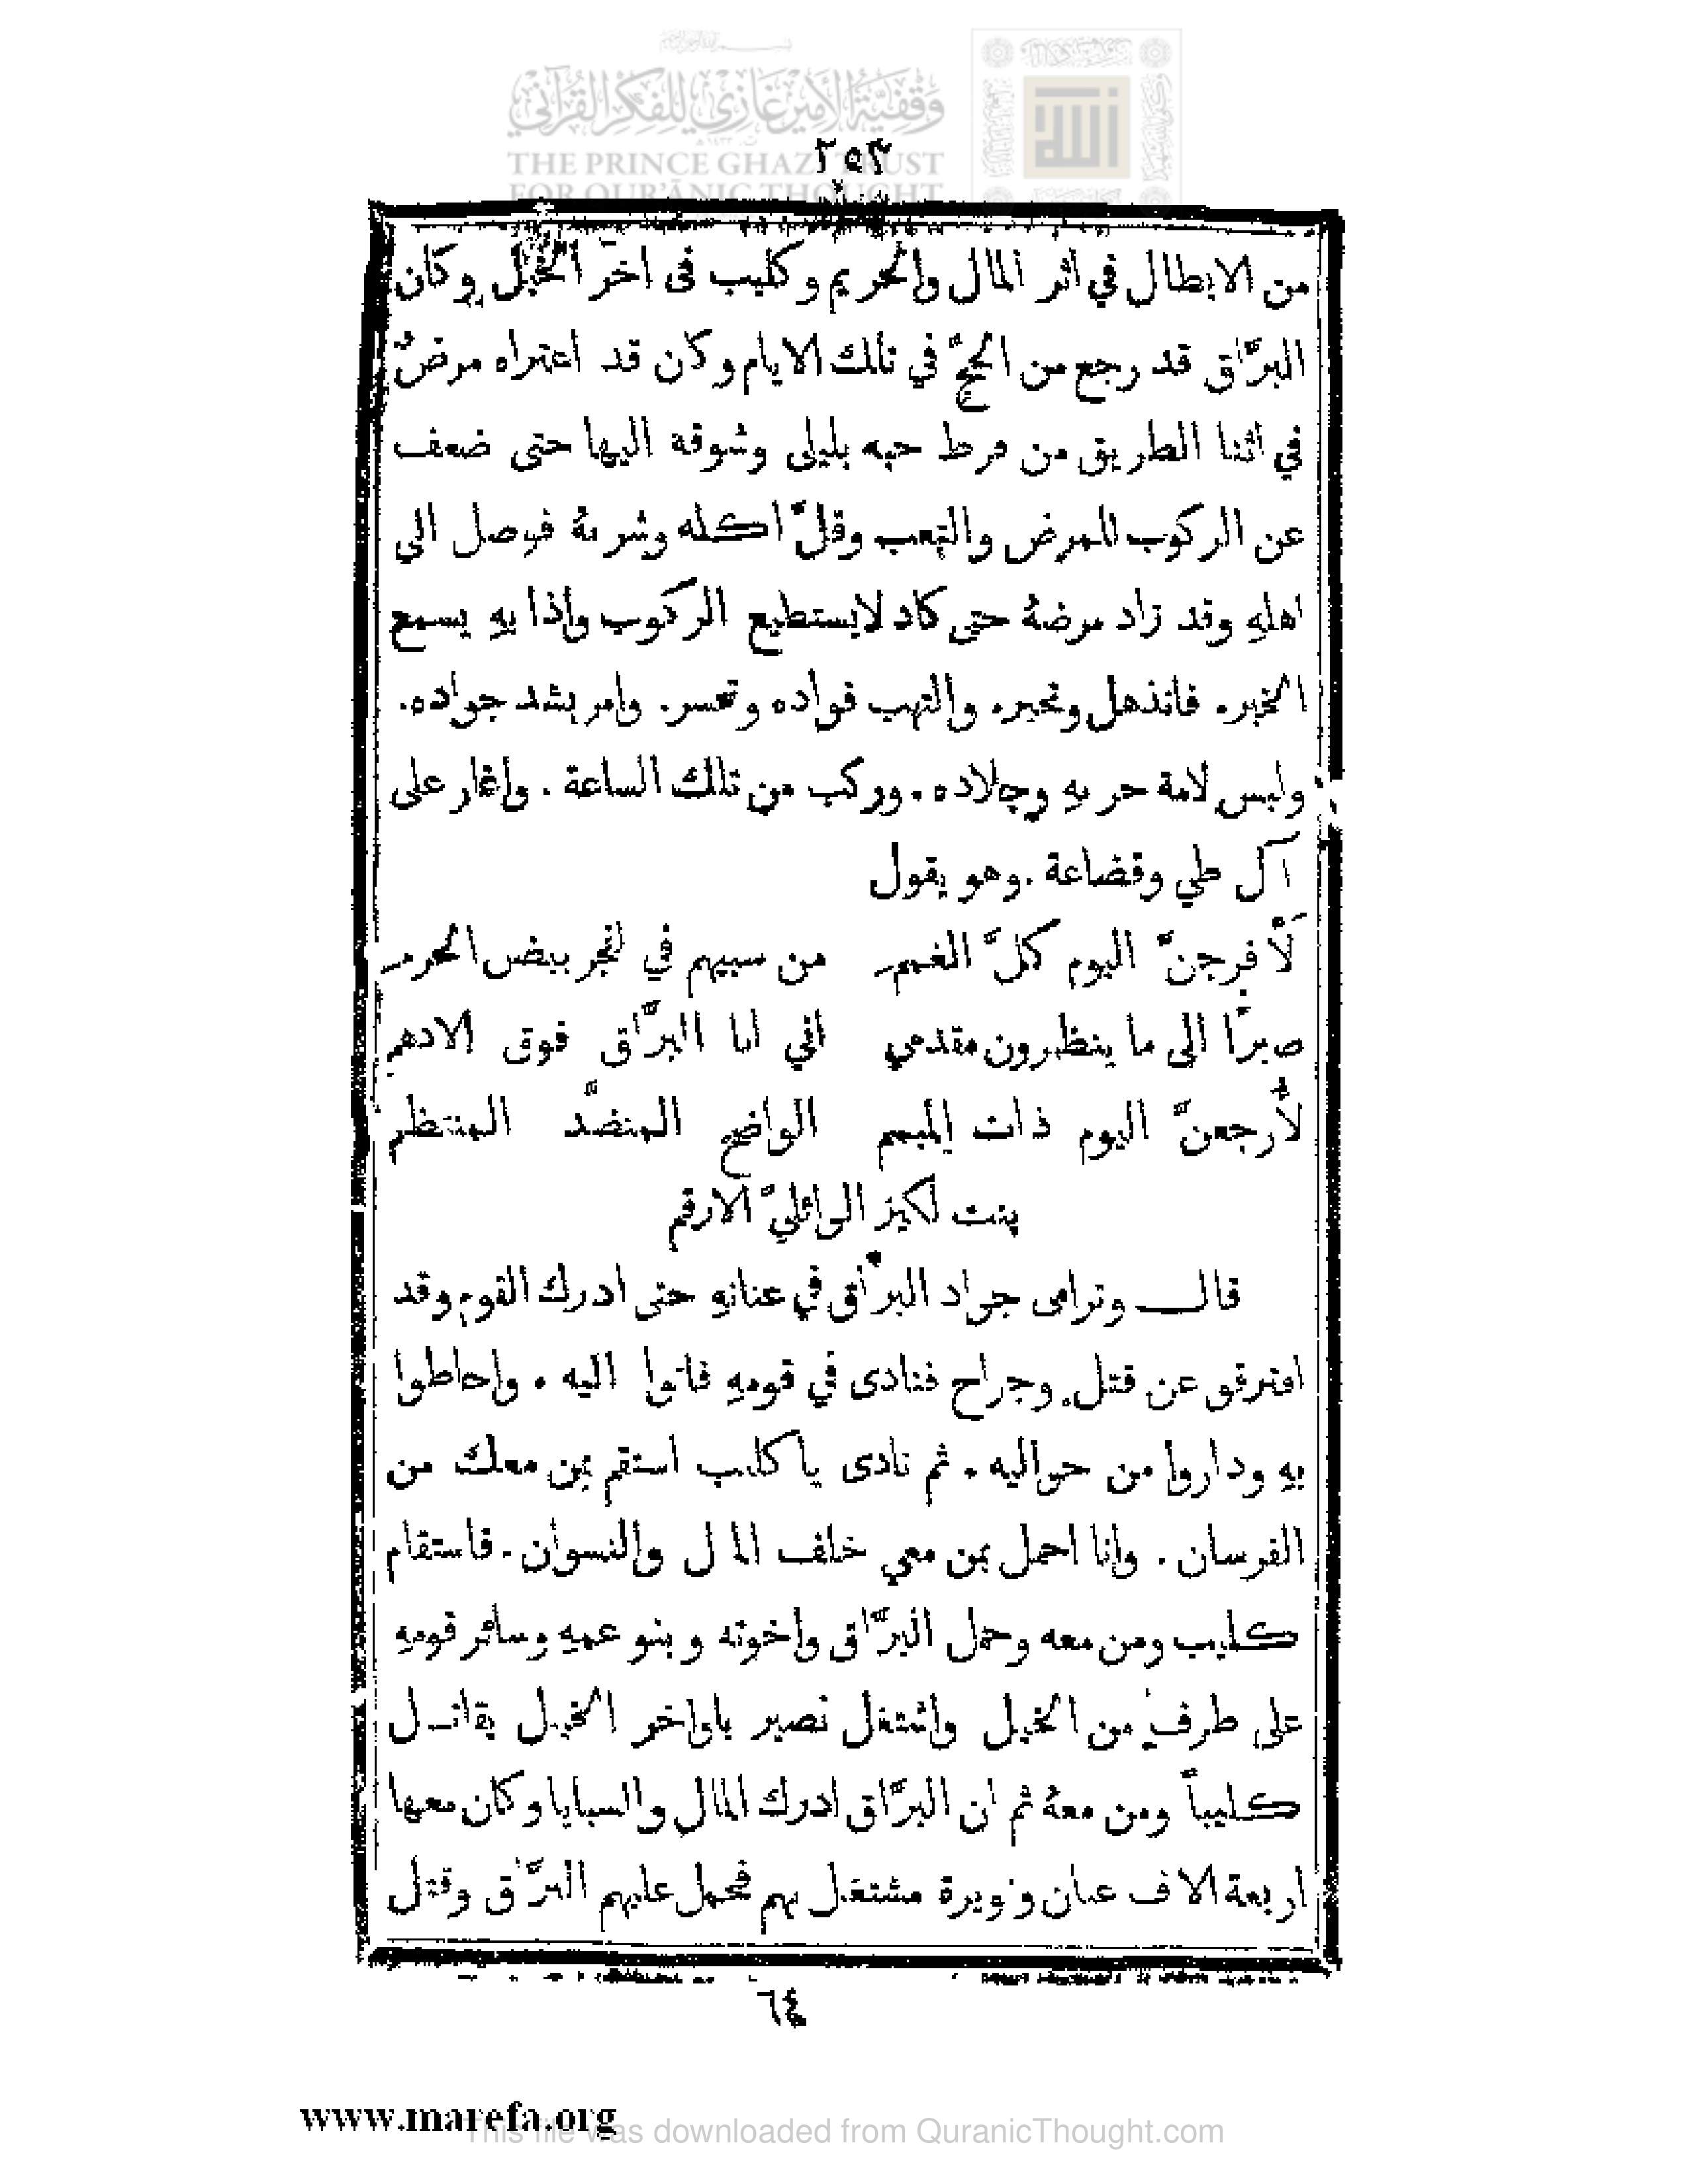 وقفية الأمير غازي للفكر القرآني
THE PRINCE GHAZI TRUST
FOR QUR'ĀNIC THOUGHT
٢٥٣
من الابطال في اثر المال والحريم وكليب في اخر الخيل وكان
البرَّاق قد رجع من الحجّ في تلك الايام وكان قد اعتراه مرضٌ
في اثنا الطريق من فرط حبه بليلى وشوقه اليها حتى ضعف
عن الركوب للمرض والتعب وقلَّ اكله وشربهُ فوصل الى
اهلهِ وقد زاد مرضهُ حتى كاد لايستطيع الركوب واذا بهِ يسمع
الخبر. فانذهل وتحير. والتهب فواده وتحسر. وامر بشد جواده.
ولبس لامة حربهِ وجلاده. وركب من تلك الساعة. واغار على
آل طي وقضاعة. وهو يقول
لَأُفرجنَّ اليوم كلَّ الغمم من سبيهم في بيض الحرم
صبرًا الى ما ينظرون مقدمي اني انا البرَّاق فوق الادهم
لأُرجعنَّ اليوم ذات المبسم الواضح المنضَّد المنتظم
بنت لكيز الوائليّ الارقم
قال وترامى جواد البرَّاق في عنانهِ حتى ادرك القوم وقد
افترقو عن قتل. وجراح فنادى في قومهِ فاتوا اليه. واحاطوا
بهِ وداروا من حواليه. ثم نادى ياكليب استقم بمن معك من
الفرسان. وانا احمل بمن معي خلف المال والنسوان. فاستقام
كليب ومن معه وحمل البرَّاق واخوته وبنو عمهِ وسائر قومهِ
على طرفٍ من الخيل واشتغل نصير باواخر الخيل يقاتل
كليباً ومن معهُ ثم ان البرَّاق ادرك المال والسبايا وكان معها
اربعة الاف عنان ونويرة مشتغل بهم فحمل عليهم البرَّاق وقتل
٦٤
www.marefa.org
This file was downloaded from QuranicThought.com